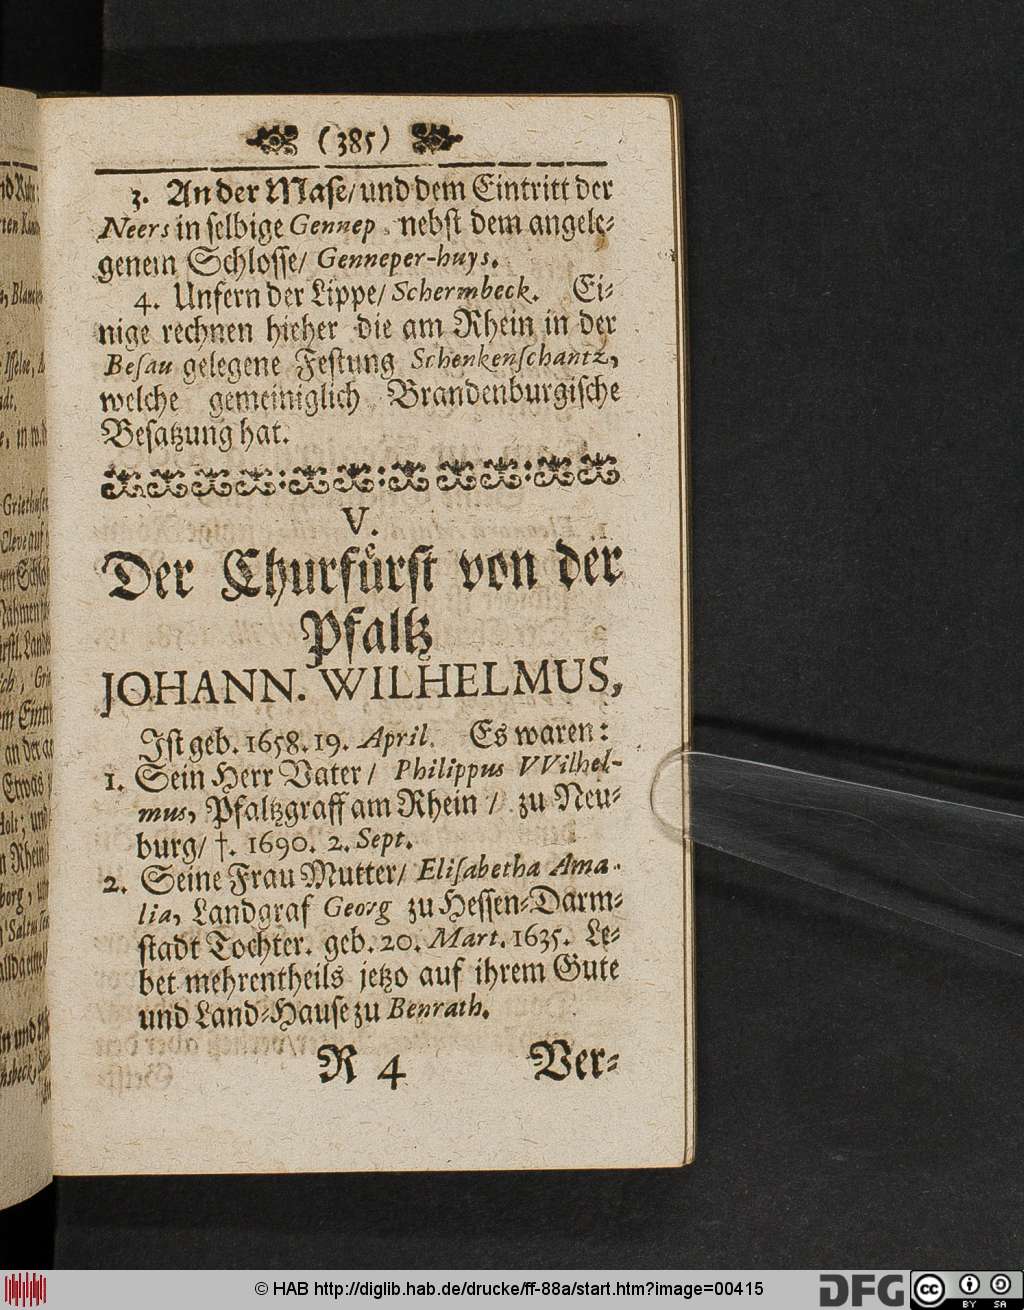 (385)
3. An der Mase/ und dem Eintritt der
Neers in selbige Gennep, nebst dem angele-
genem Schlosse/ Genneper-huys.
4. Unfern der Lippe/ Schermbeck. Ei-
nige rechnen hieher die am Rhein in der
Besau gelegene Festung Schenkenschantz,
welche gemeiniglich Brandenburgische
Besatzung hat.
V.
Der Churfürst von der
Pfaltz
JOHANN. WILHELMUS,
Ist geb. 1658. 19. April. Es waren:
1. Sein Herr Vater/ Philippus VVilhel-
mus, Pfaltzgraff am Rhein / zu Neu-
burg/ †. 1690. 2. Sept.
2. Seine Frau Mutter/ Elisabetha Ama-
lia, Landgraf Georg zu Hessen-Darm-
stadt Tochter. geb. 20. Mart. 1635. Le-
bet mehrentheils jetzo auf ihrem Gute
und Land-Hause zu Benrath.
R 4 Ver-
© HAB http://diglib.hab.de/drucke/ff-88a/start.htm?image=00415
DFG
cc BY SA